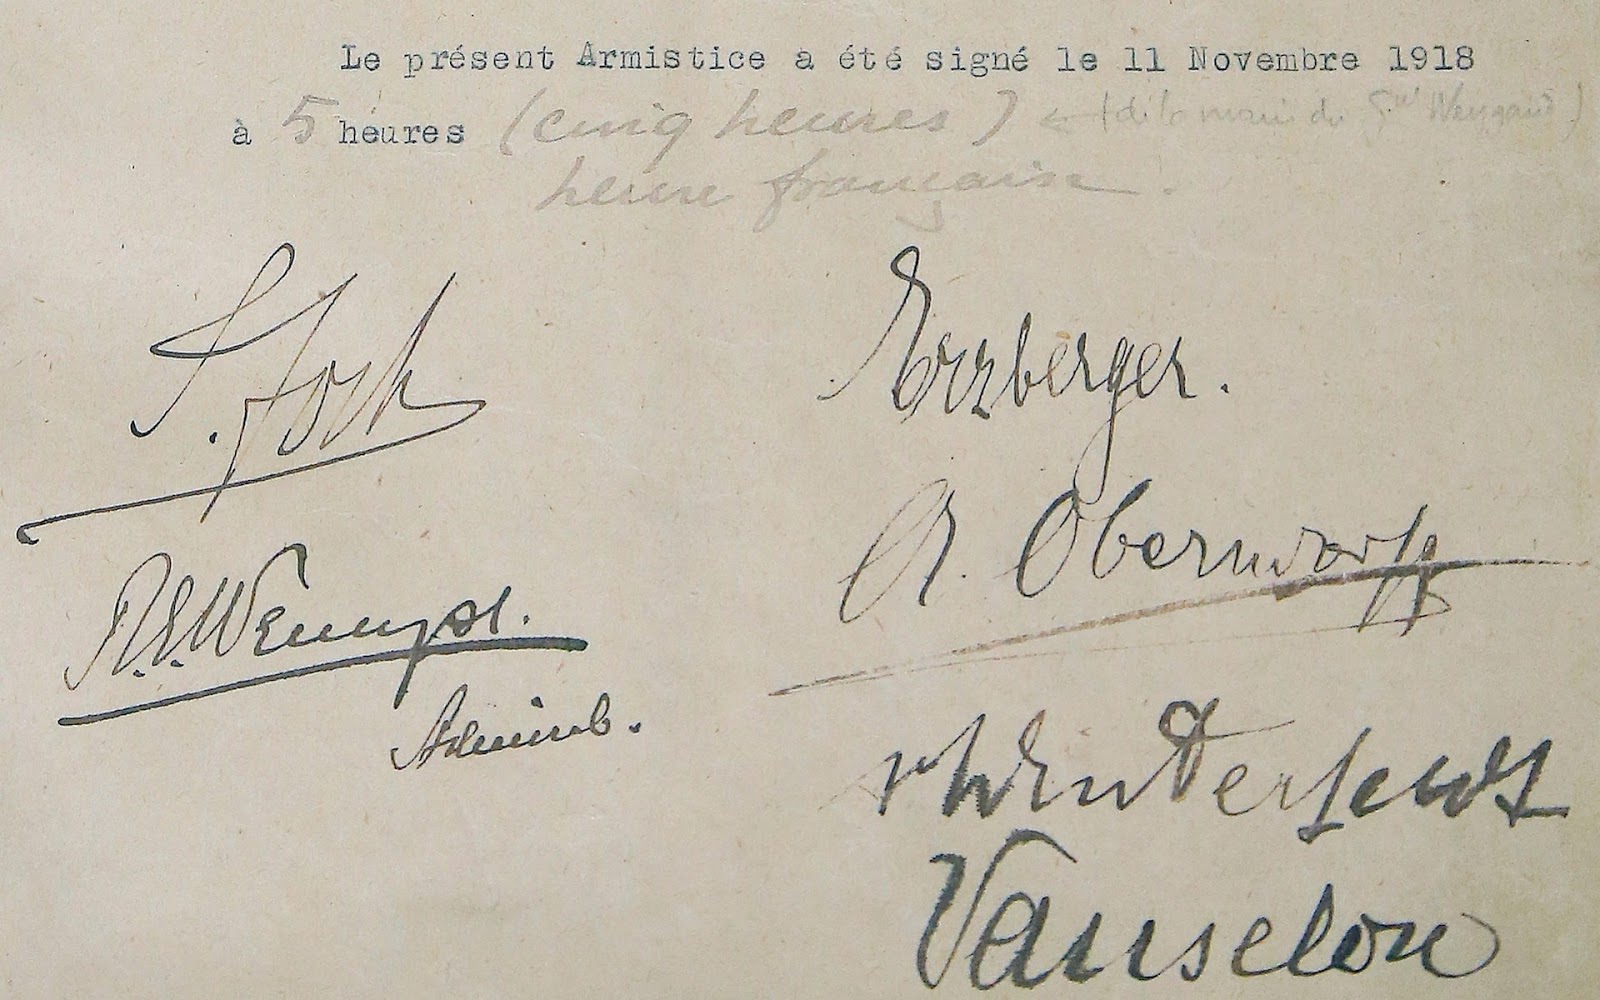 Le présent Armistice a été signé le 11 Novembre 1918
à 5 heures (cinq heures) ← (de la main du Gal Weygand)
heure française.
F. Foch
Erzberger.
A. Oberndorff
R.E. Wemyss.
Admiral.
v Winterfeldt
Vanselow